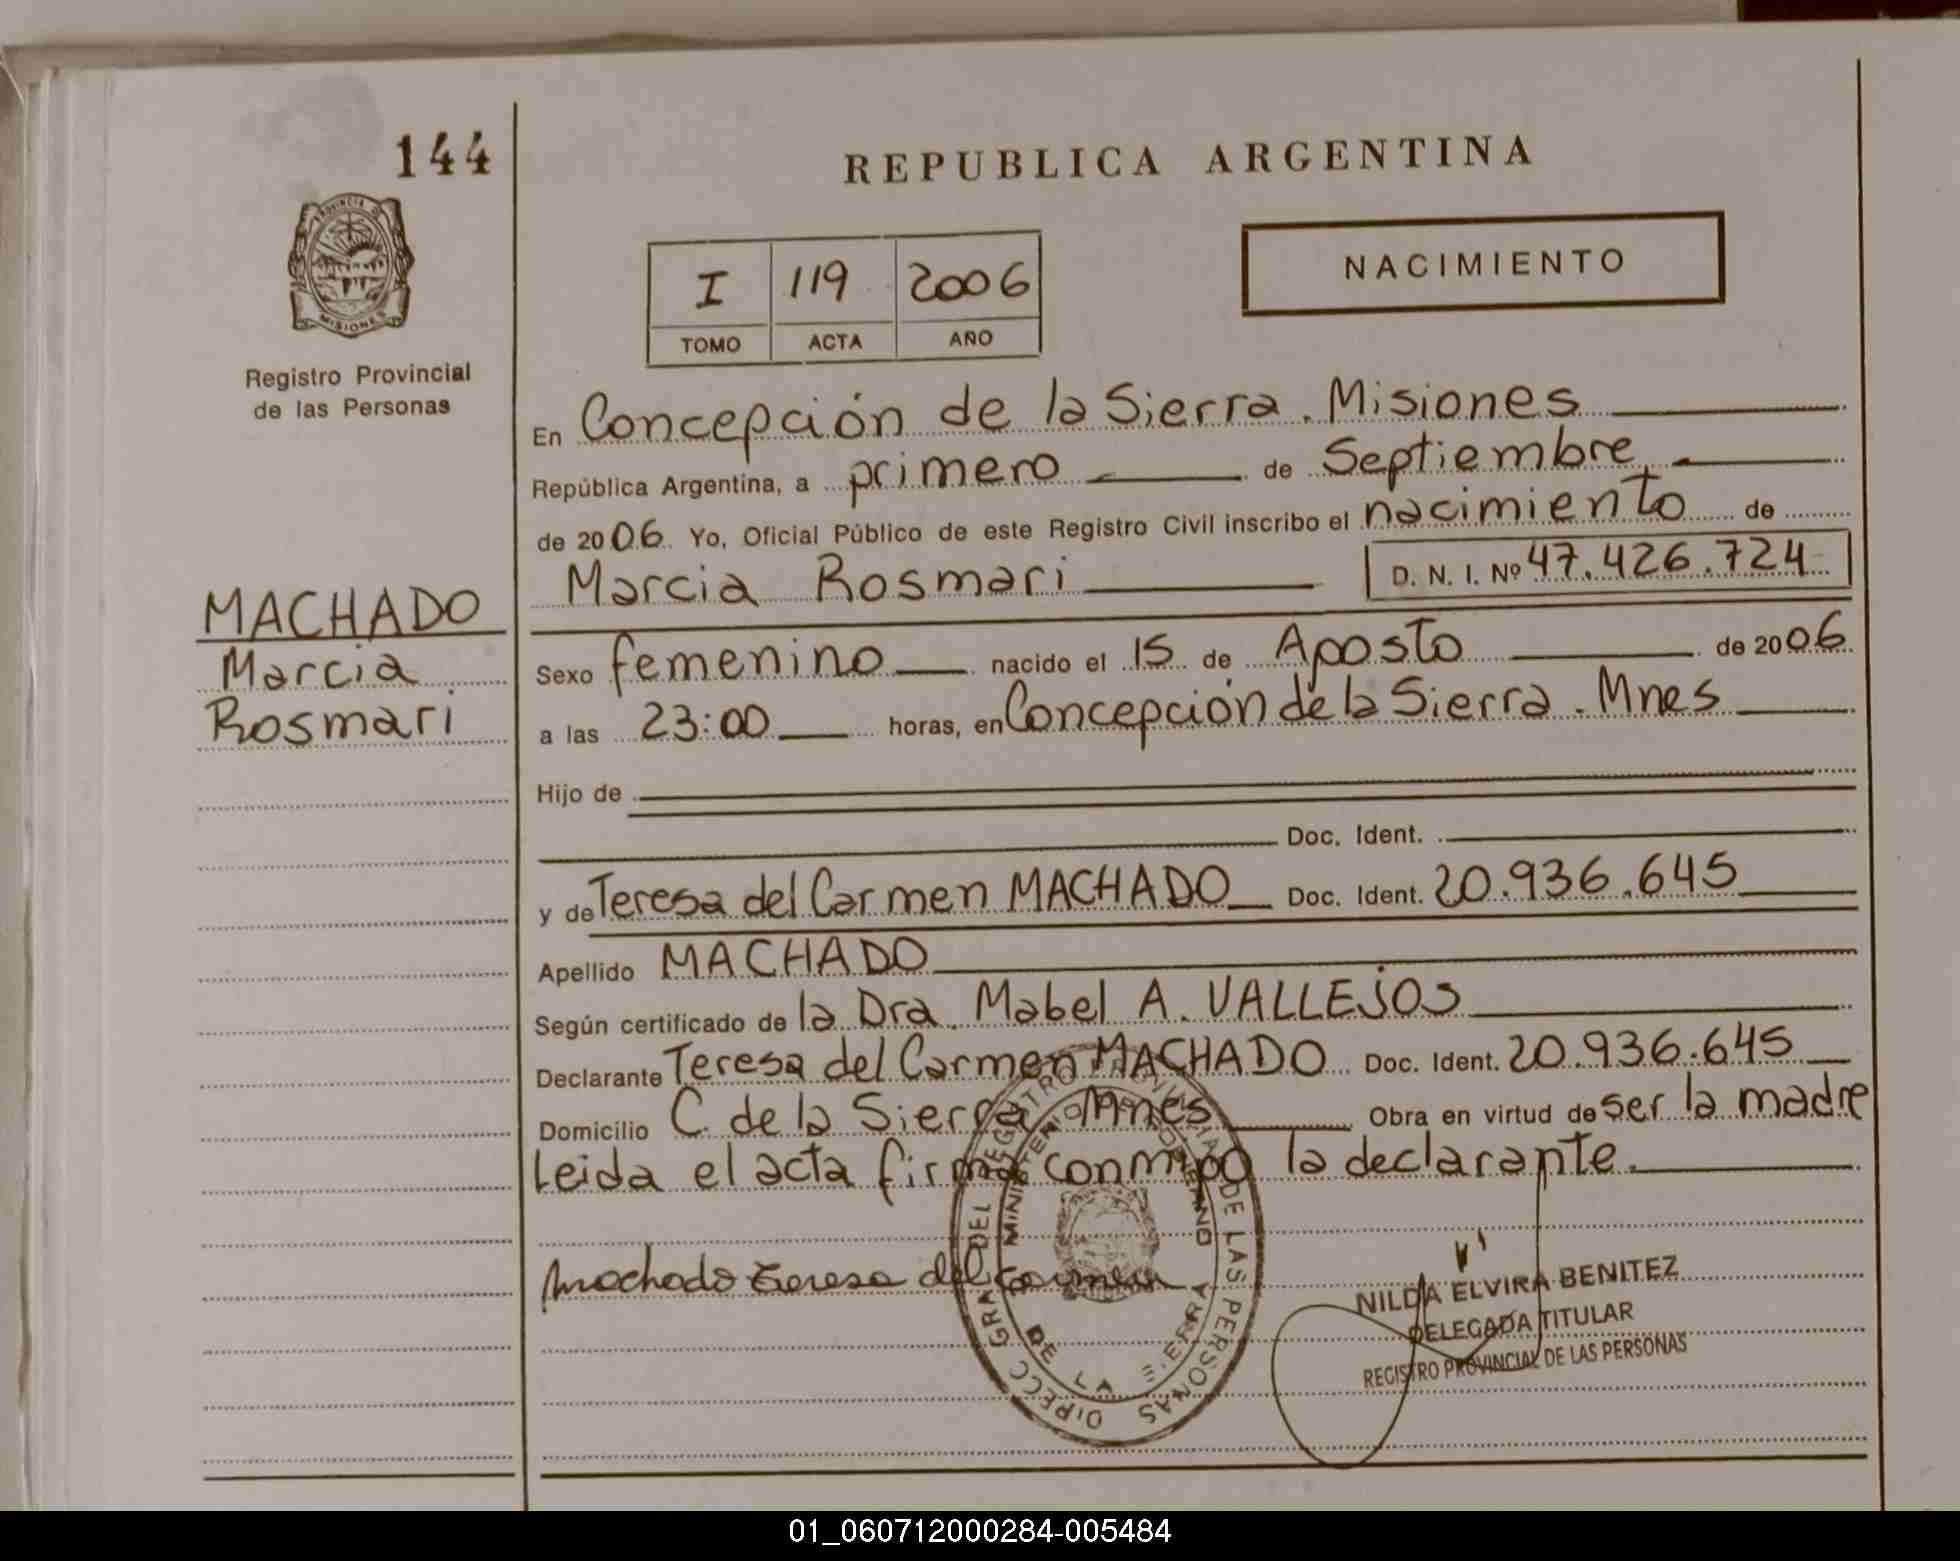 144
REPUBLICA ARGENTINA
PROVINCIA DE
MISIONES
Registro Provincial
de las Personas
I 119 2006
TOMO ACTA AÑO
NACIMIENTO
En Concepción de la Sierra. Misiones
República Argentina, a primero de Septiembre
de 2006 Yo, Oficial Público de este Registro Civil inscribo el nacimiento de
Marcia Rosmari D. N. I. Nº 47.426.724
MACHADO
Marcia
Rosmari
Sexo femenino nacido el 15 de Agosto de 2006
a las 23:00 horas, en Concepción de la Sierra. Mnes
Hijo de
Doc. Ident.
y de Teresa del Carmen MACHADO Doc. Ident. 20.936.645
Apellido MACHADO
Según certificado de la Dra. Mabel A. VALLEJOS
Declarante Teresa del Carmen MACHADO Doc. Ident. 20.936.645
Domicilio C. de la Sierra Mnes Obra en virtud de ser la madre
Leida el acta firma conmigo la declarante.
Machado Teresa del Carmen
NILDA ELVIRA BENITEZ
DELEGADA TITULAR
REGISTRO PROVINCIAL DE LAS PERSONAS
GRAL DEL REGISTRO PROVINCIAL DE LAS PERSONAS
MINISTERIO DE GOBIERNO
DE LA SIERRA
01_060712000284-005484